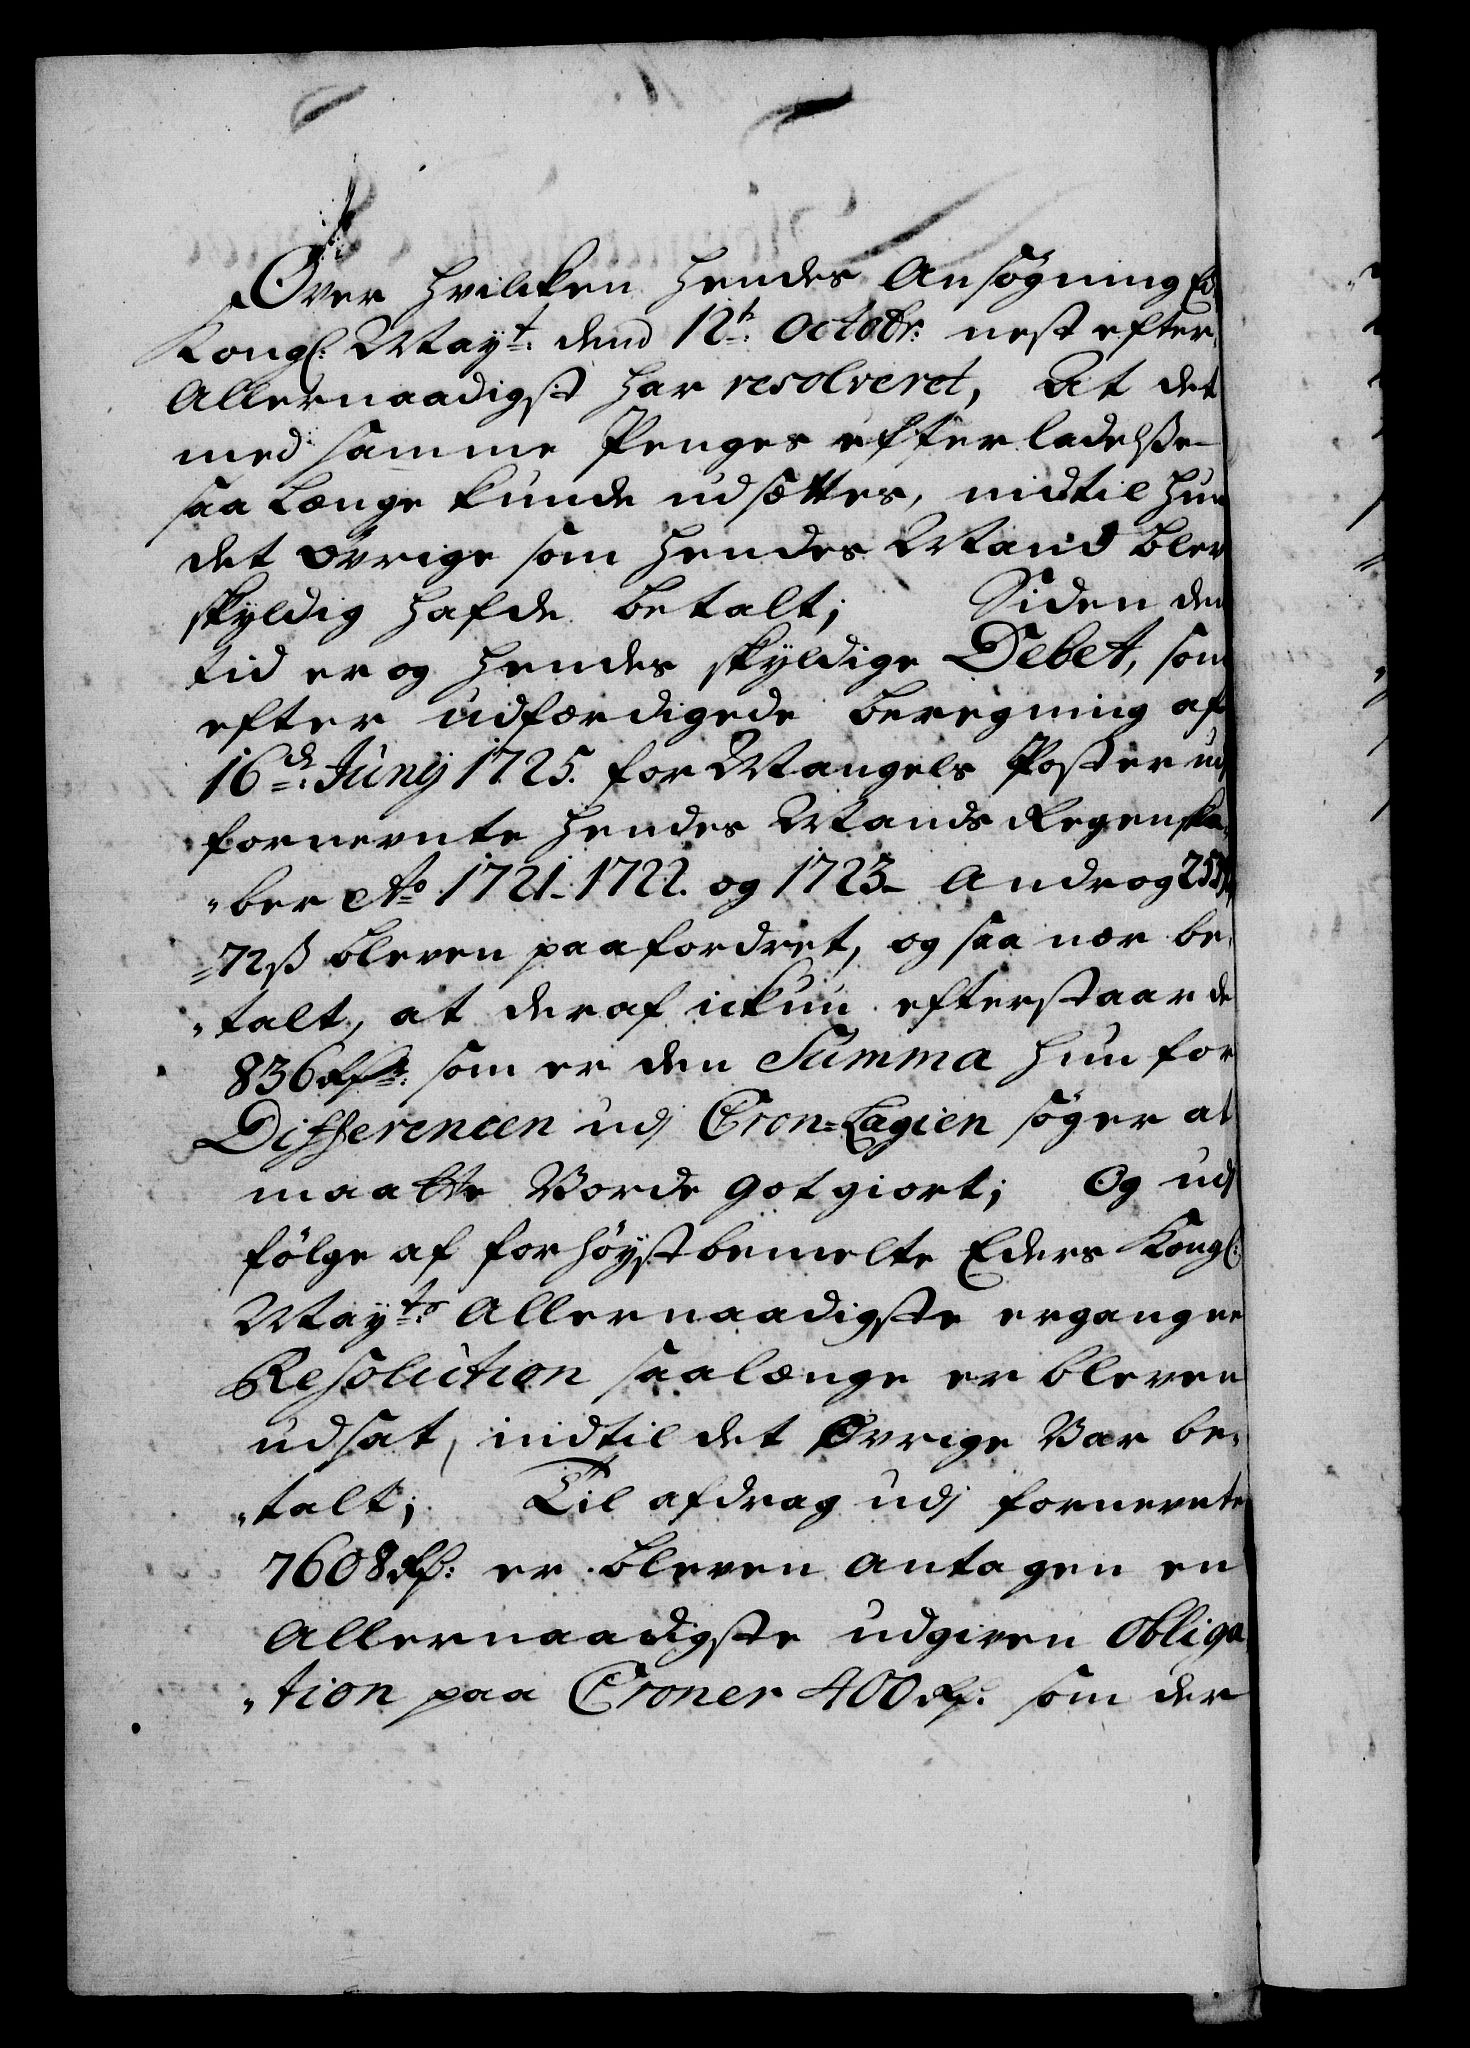 Over hvilcken hendes Ansögning Ed:
Kongl: May:t dend 12t: Octobr: nest efter,
Allernaadigst har resolveret, At det
med samme Penges efterladelsse
saa Længe kunde udsættes, indtil hun
det övrige som hendes Mand blev
skyldig hafde betalt; Siden den
tid er og hendes skyldige Debet, som
efter udfærdigede beregning af
16de: Junij 1725. for Mangels Poster udj
fornevnte hendes Mands Regenska,
"ber Ao 1721. 1722. og 1723. Androg
72ß bleven paafordret, og saa nær be,
"talt, at deraf ickun efterstaar de
836 Rdr: som er den Summa hun for
Differencen udj Cron=Lagien söger at
maatte Vorde got giort; Og udj
fölge af forhöystbemelte Eders Kongl:
May:ts Allernaadigste ergangne
Resolution saalænge er bleven
udsat, indtil det Övrige Var be,
"talt; Til afdrag udj fornevnte
7608 Rdr: er bleven antagen en
Allernaadigste udgiven Obliga,
"tion paa Croner 400 Rdr. som der